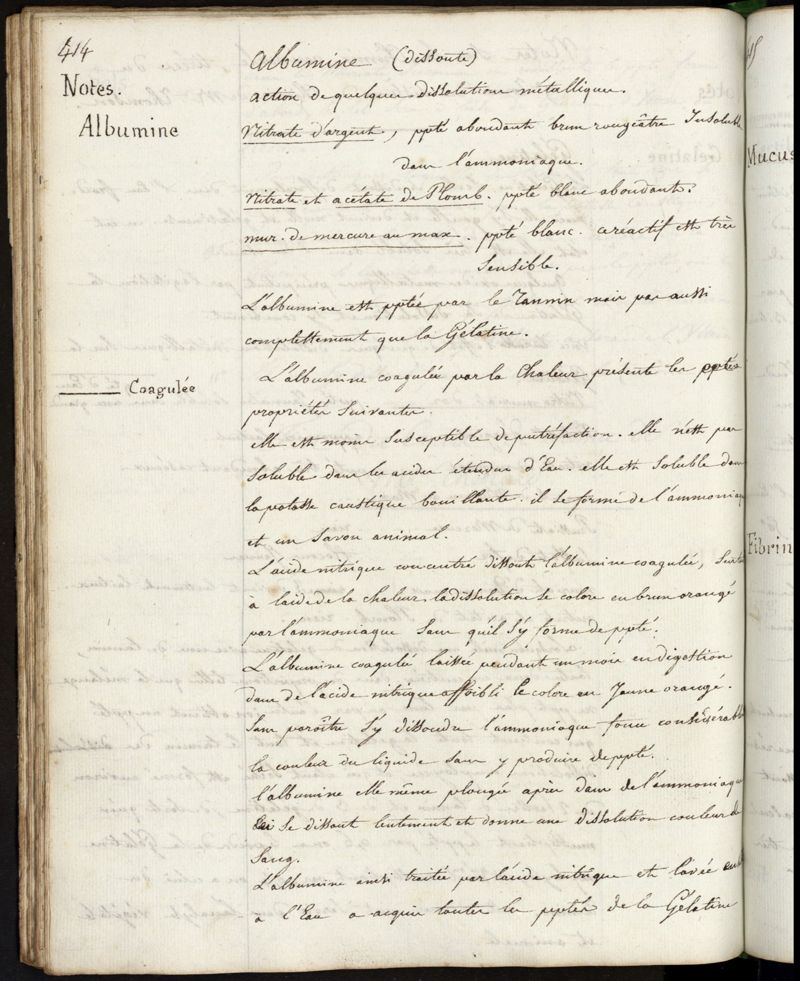 414
Notes.
Albumine
Albumine (dissoute)
action de quelques dissolutions métalliques.
Nitrate d'argent, ppté abondant brun rougeâtre Insoluble
dans l'ammoniaque.
Nitrate et acétate de Plomb. ppté blanc abondant.
mur. de mercure au max. ppté blanc. ce réactif est très
sensible.
L'albumine est pptée par le Tannin mais pas aussi
complettement que la Gélatine.
Coagulée
L'albumine coagulée par la Chaleur présente les
propriétés suivantes.
elle est moins susceptible de putréfaction. elle n'est pas
soluble dans les acides étendus d'Eau. elle est soluble dans
la potasse caustique bouillante. il se forme de l'ammoniaque
et un savon animal.
L'acide nitrique concentré dissout l'albumine coagulée,
à l'aide de la chaleur. la dissolution se colore en brun orangé
par l'ammoniaque sans qu'il s'y forme de ppté.
L'albumine coagulée laissée pendant un mois en digestion
dans de l'acide nitrique affoibli le colore en Jaune orangé.
sans paroître s'y dissoudre l'ammoniaque fonce considérabl
la couleur du liquide sans y produire de ppté.
l'albumine elle même plongée après dans de l'ammoniaque
se dissout lentement et donne une dissolution couleur de
sang.
L'albumine ainsi traitée par l'acide nitrique et lavée
à l'Eau a acquis toutes les pptés de la Gélatine
Mucus
Fibrin